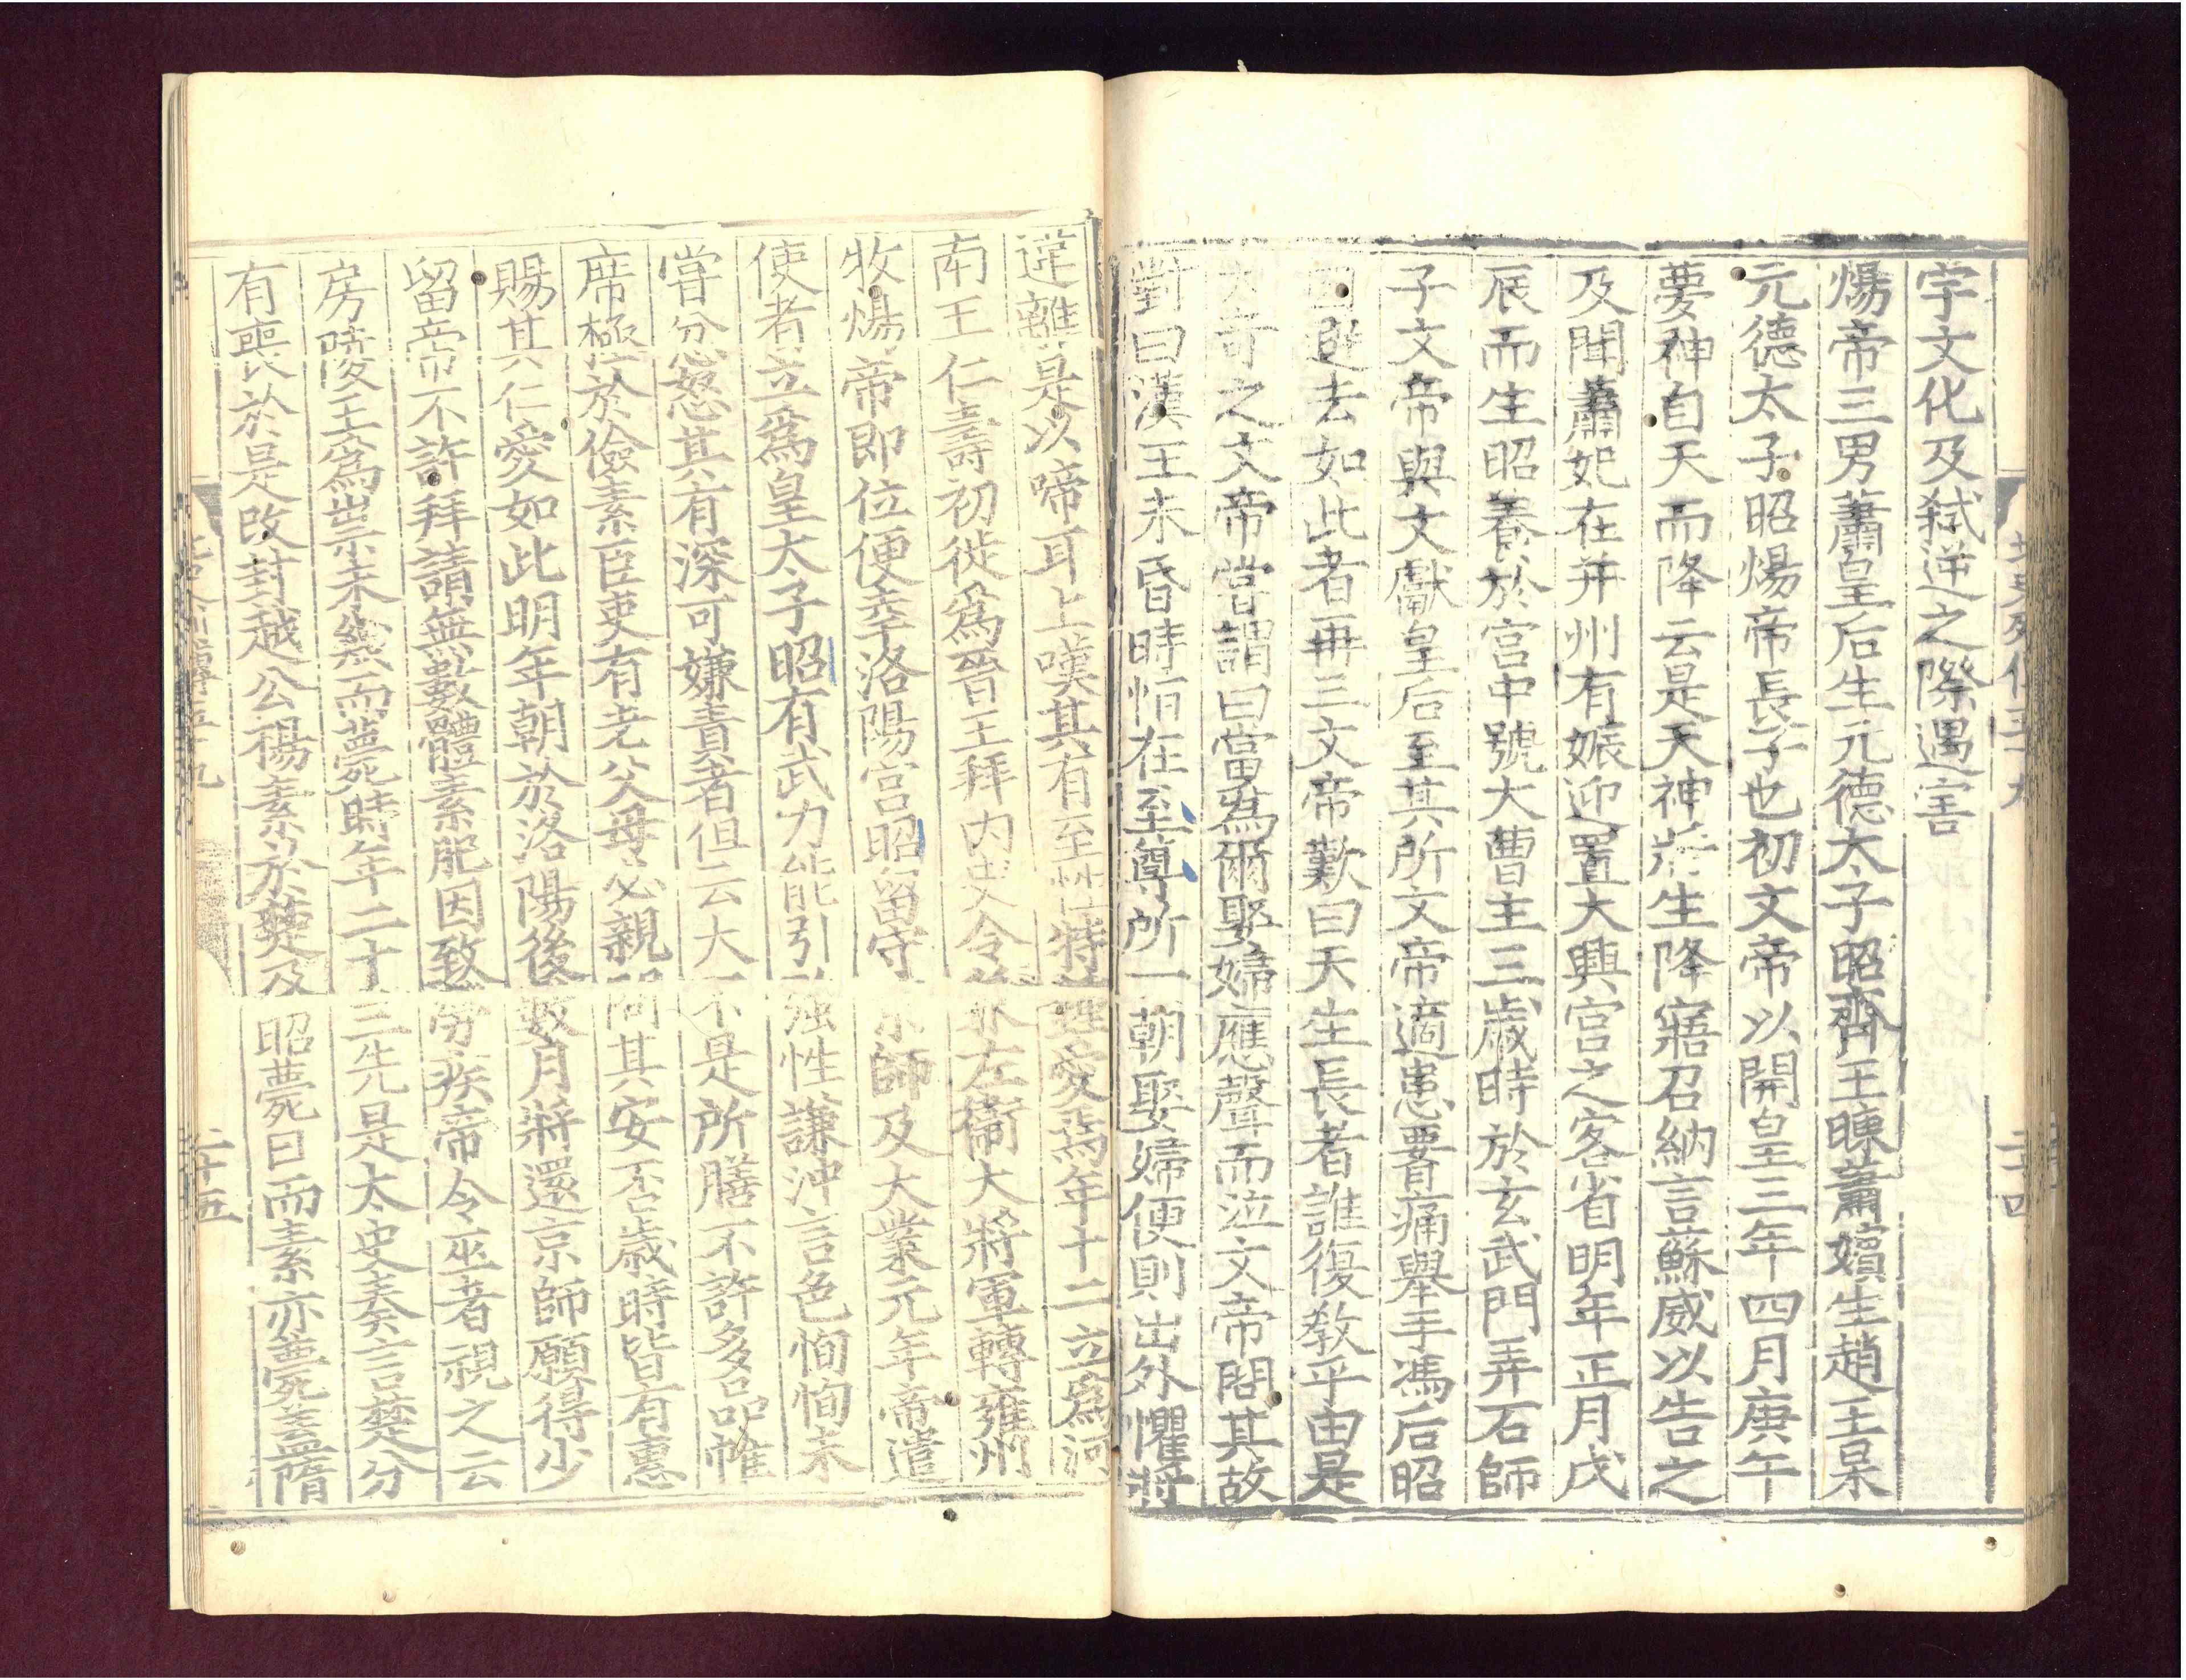 宇文化及弑逆之際遇害
煬帝三男蕭皇后生元德太子昭齊王暕蕭嬪生趙王杲
元德太子昭煬帝長子也初文帝以開皇三年四月庚午
夢神自天而降云是天神將生降寤召納言蘇威以告之
及聞蕭妃在幷州有娠迎置大興宮之客省明年正月戊
辰而生昭養於宮中號大曹主三歲時於玄武門弄石師
子文帝與文獻皇后至其所文帝適患腰痛舉手馮后昭
因避去如此者再三文帝歎曰天生長者誰復敎乎由是
大奇之文帝嘗謂曰當爲爾娶婦應聲而泣文帝問其故
對曰漢王未昏時恒在至尊所一朝娶婦便則出外懼將
違離是以啼耳上嘆其有至性特鍾愛焉年十二立爲河
南王仁壽初徙爲晉王拜內史令兼左衛大將軍轉雍州
牧煬帝即位便幸洛陽宮昭留守京師及大業元年帝遣
使者立爲皇太子昭有武力能引強性謙沖言色恂恂未
嘗忿怒其有深可嫌責者但云大不是所膳不許多品帷
席極於儉素臣吏有老父母必親問其安否歲時皆有惠
賜其仁愛如此明年朝於洛陽後數月將還京師願得少
留帝不許拜請無數體素肥因致勞疾帝令巫者視之云
房陵王爲祟未幾而薨時年二十三先是太史奏言楚分
有喪於是改封越公楊素於楚及昭薨日而素亦薨蓋隋
北史列傳五十九
二十四
二十五